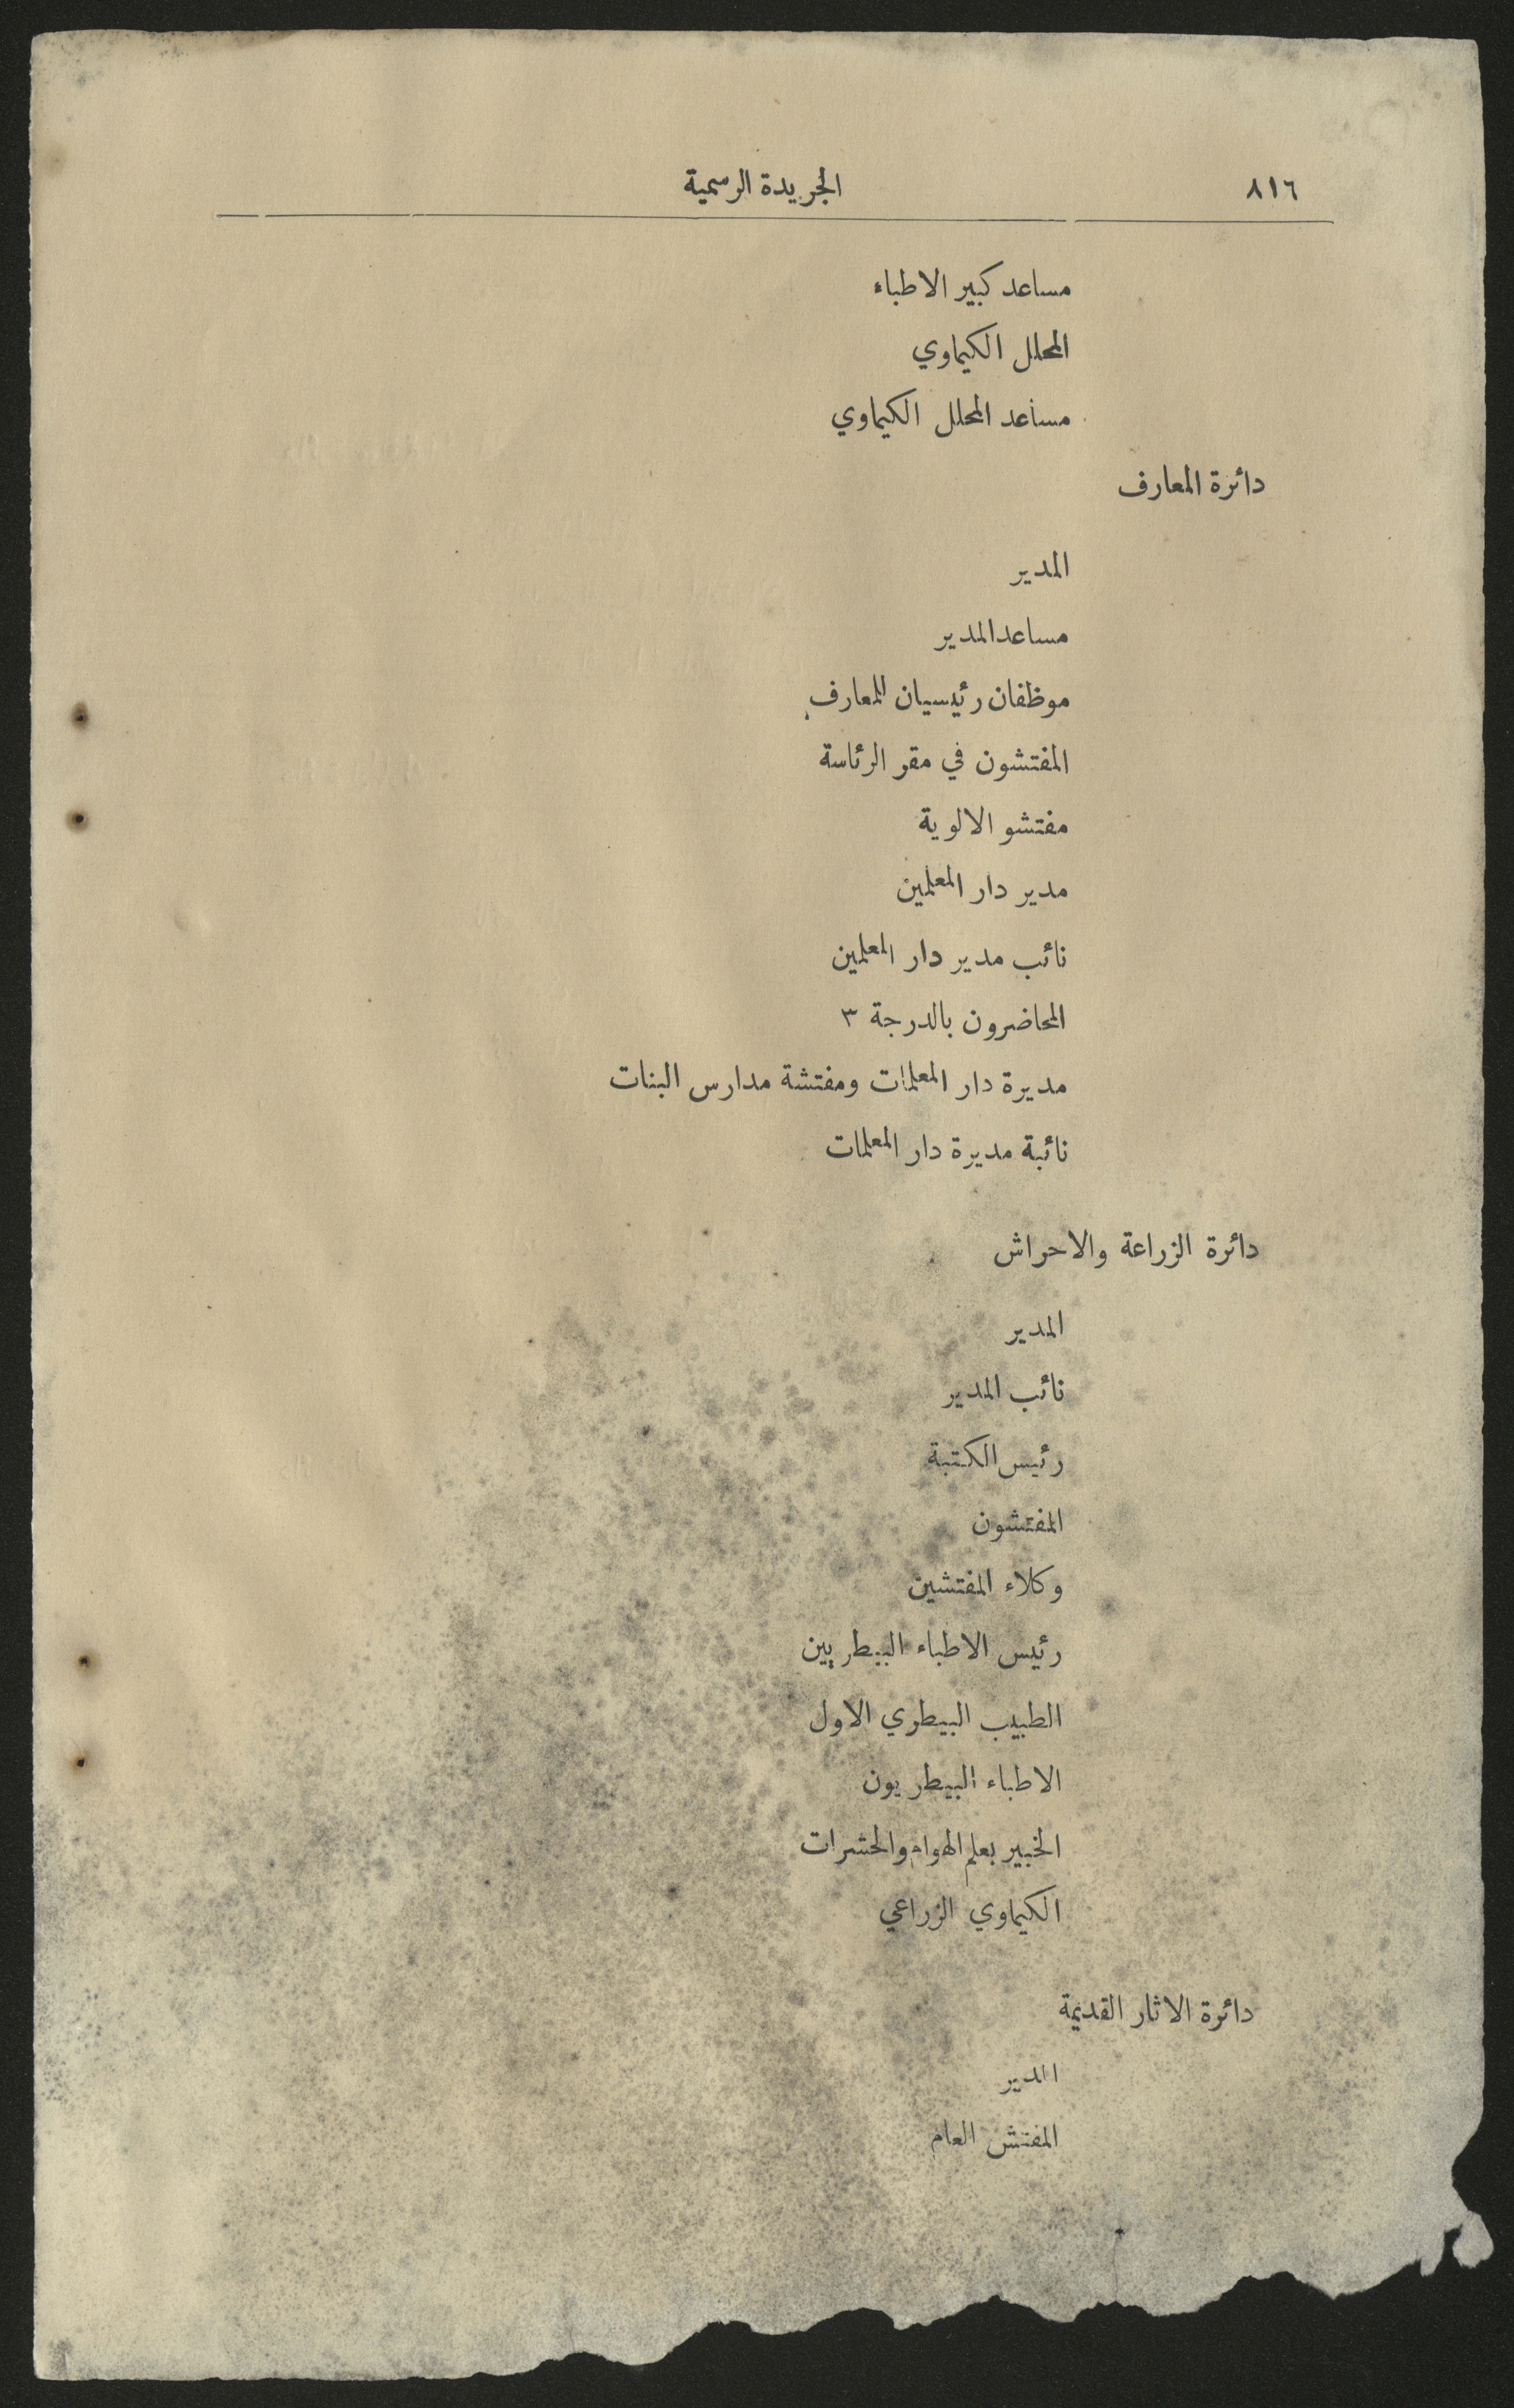 ٨١٦
الجريدة الرسمية
مساعد كبير الاطباء
المحلل الكيماوي
مساعد المحلل الكيماوي
دائرة المعارف
المدير
مساعد المدير
موظفان رئيسيان للمعارف
المفتشون في مقر الرئاسة
مفتشو الالوية
مدير دار المعلمين
نائب مدير دار المعلمين
المحاضرون بالدرجة ٣
مديرة دار المعلمات ومفتشة مدارس البنات
نائبة مديرة دار المعلمات
دائرة الزراعة والاحراش
المدير
نائب المدير
رئيس الكتبة
المفتشون
وكلاء المفتشين
رئيس الاطباء البيطريين
الطبيب البيطري الاول
الاطباء البيطريون
الخبير بعلم الهوام والحشرات
الكيماوي الزراعي
دائرة الاثار القديمة
المدير
المفتش العام